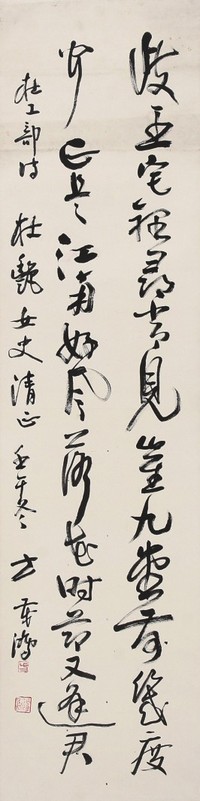 岐王宅裡尋常見崔九堂前幾度
聞正是江南好風景落花時節又逢君
杜工部詩 杜艷女史清正 壬午冬